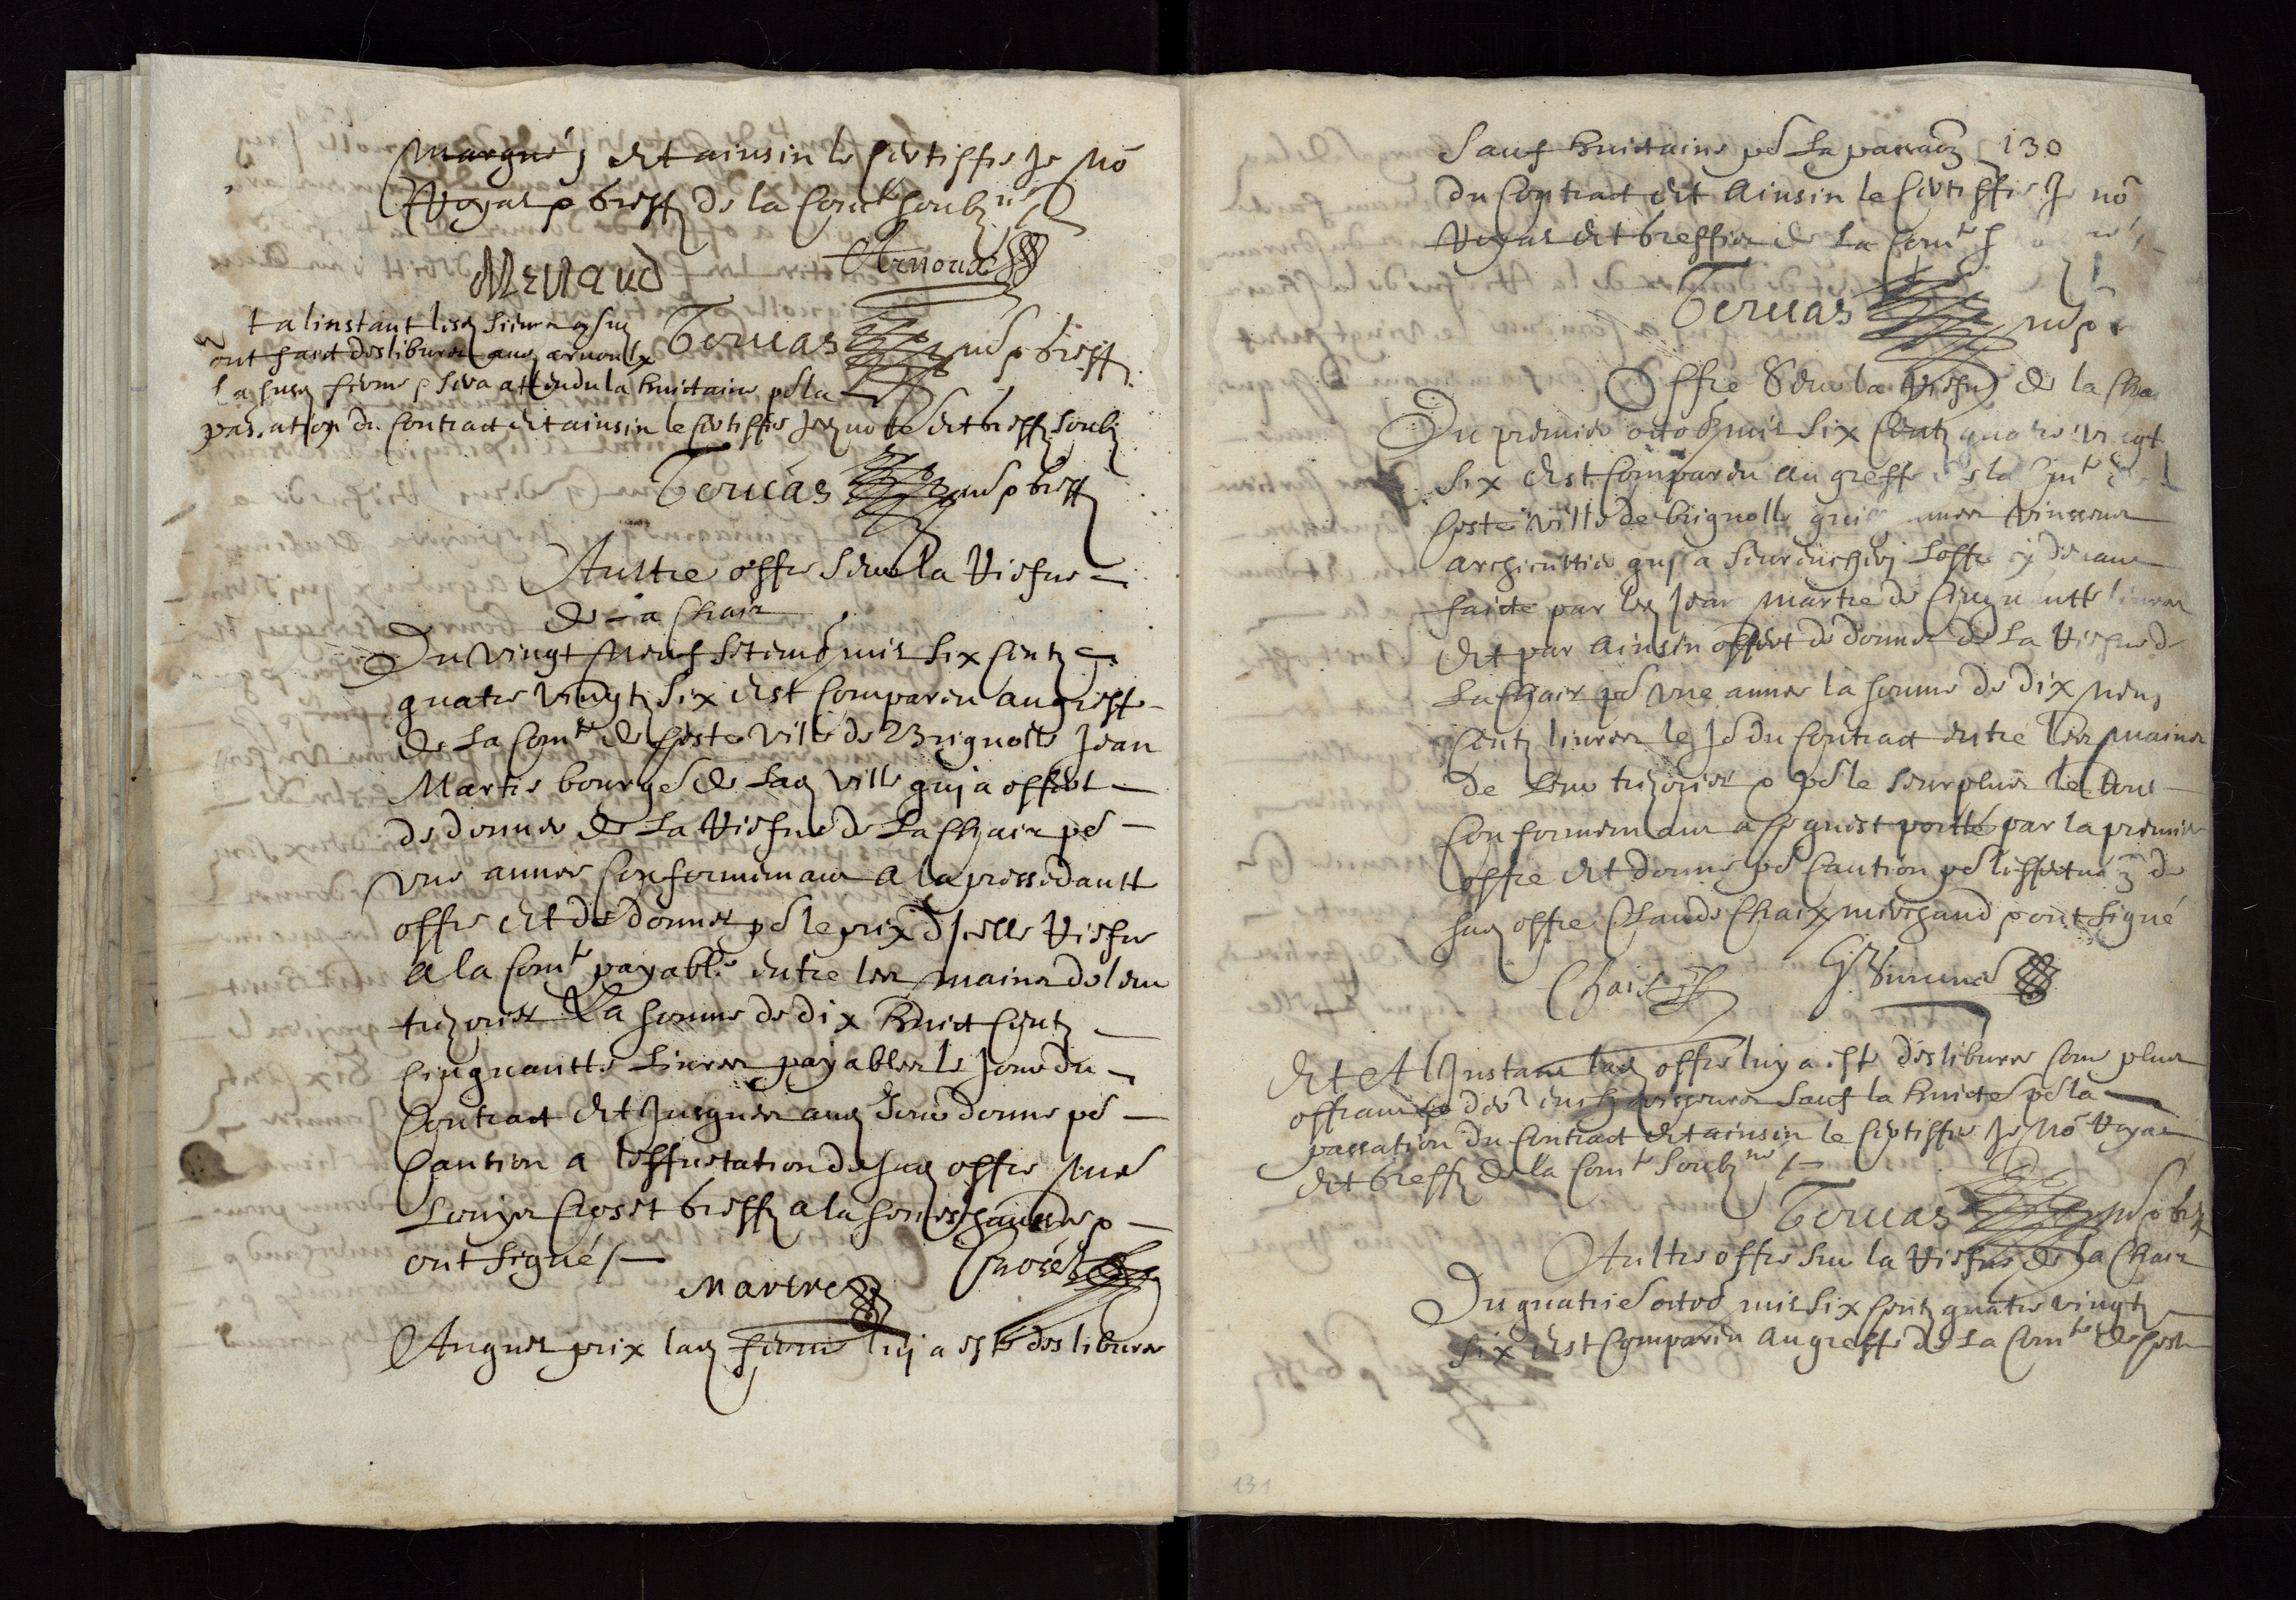 marqué et ainsin le certiffie je no
Royal & greff de la com.té soubz.né
Menaud Arnoux
t a linstant lesd sieurs consuls
ont faict desliburer aud arnoulx
lad ferme & sera attendu la huictaine po la
passation du contract et ainsin le certiffie je no et greff soubz
Geruas no & greff
Geruas no & greff
Aultre offre sur la Riesue
de la Chair
Du vingt neuf setemb mil six centz
quatre vingtz six est comparu au greffe
de la com.té de ceste ville de Brignolle Jean
Martre bourgs de lad ville quj a offert
de donner de la Riesue de la Chair po
vne annee conformemant a la pressedantte
offre et de donner po le prix djcelle Riesue
a la com.té payable entre les mains de leur
trezorier La somme de dix huict centz
cinquantte Liures payables le jour du
contract et jusques aud jour donne po
caution a leffectation de sad offre me
Louys greff a la seneschaussee &
ont signé
martre
Auquel prix lad ferme luy a esté desliburee
Sauf huictaine po la passaon 130
du contract et ainsin le certiffie Je no
Royal et greffier de la com.té
Geruas no &
Offre sur la Riesue de la Cha
Du premier octob mil six centz quatre vingt
six est comparu au greffe de la
ceste ville de brignolle
quj a surenchery loffre cy deuant
faicte par led Jean martre de cinquantte liures
et par ainsin offert de donner de la Riesue de
la Chair po vne annee la somme de dix neuf
centz liures le jo du contract entre les mains
de leur trezorier & po le surplus le tout
conformemant a ce quest portté par la premiere
offre et donne po caution po leffectuaon de
sad offre Claude Chaix merchand & ont signé
Chaix
et A lJnstant lad offre luy a esté desliburee come plus
offrant & der encherisseur sauf la huicte po la
passation du contract et ainsin le certiffie Je no Royal
et greff de la com.té soubz.né
Geruas no & greff
Aultre offre sur la Riesue de la Chair
Du quatrie octob mil six centz quatre vingtz
six est comparu au greffe de la com.té de ceste
131